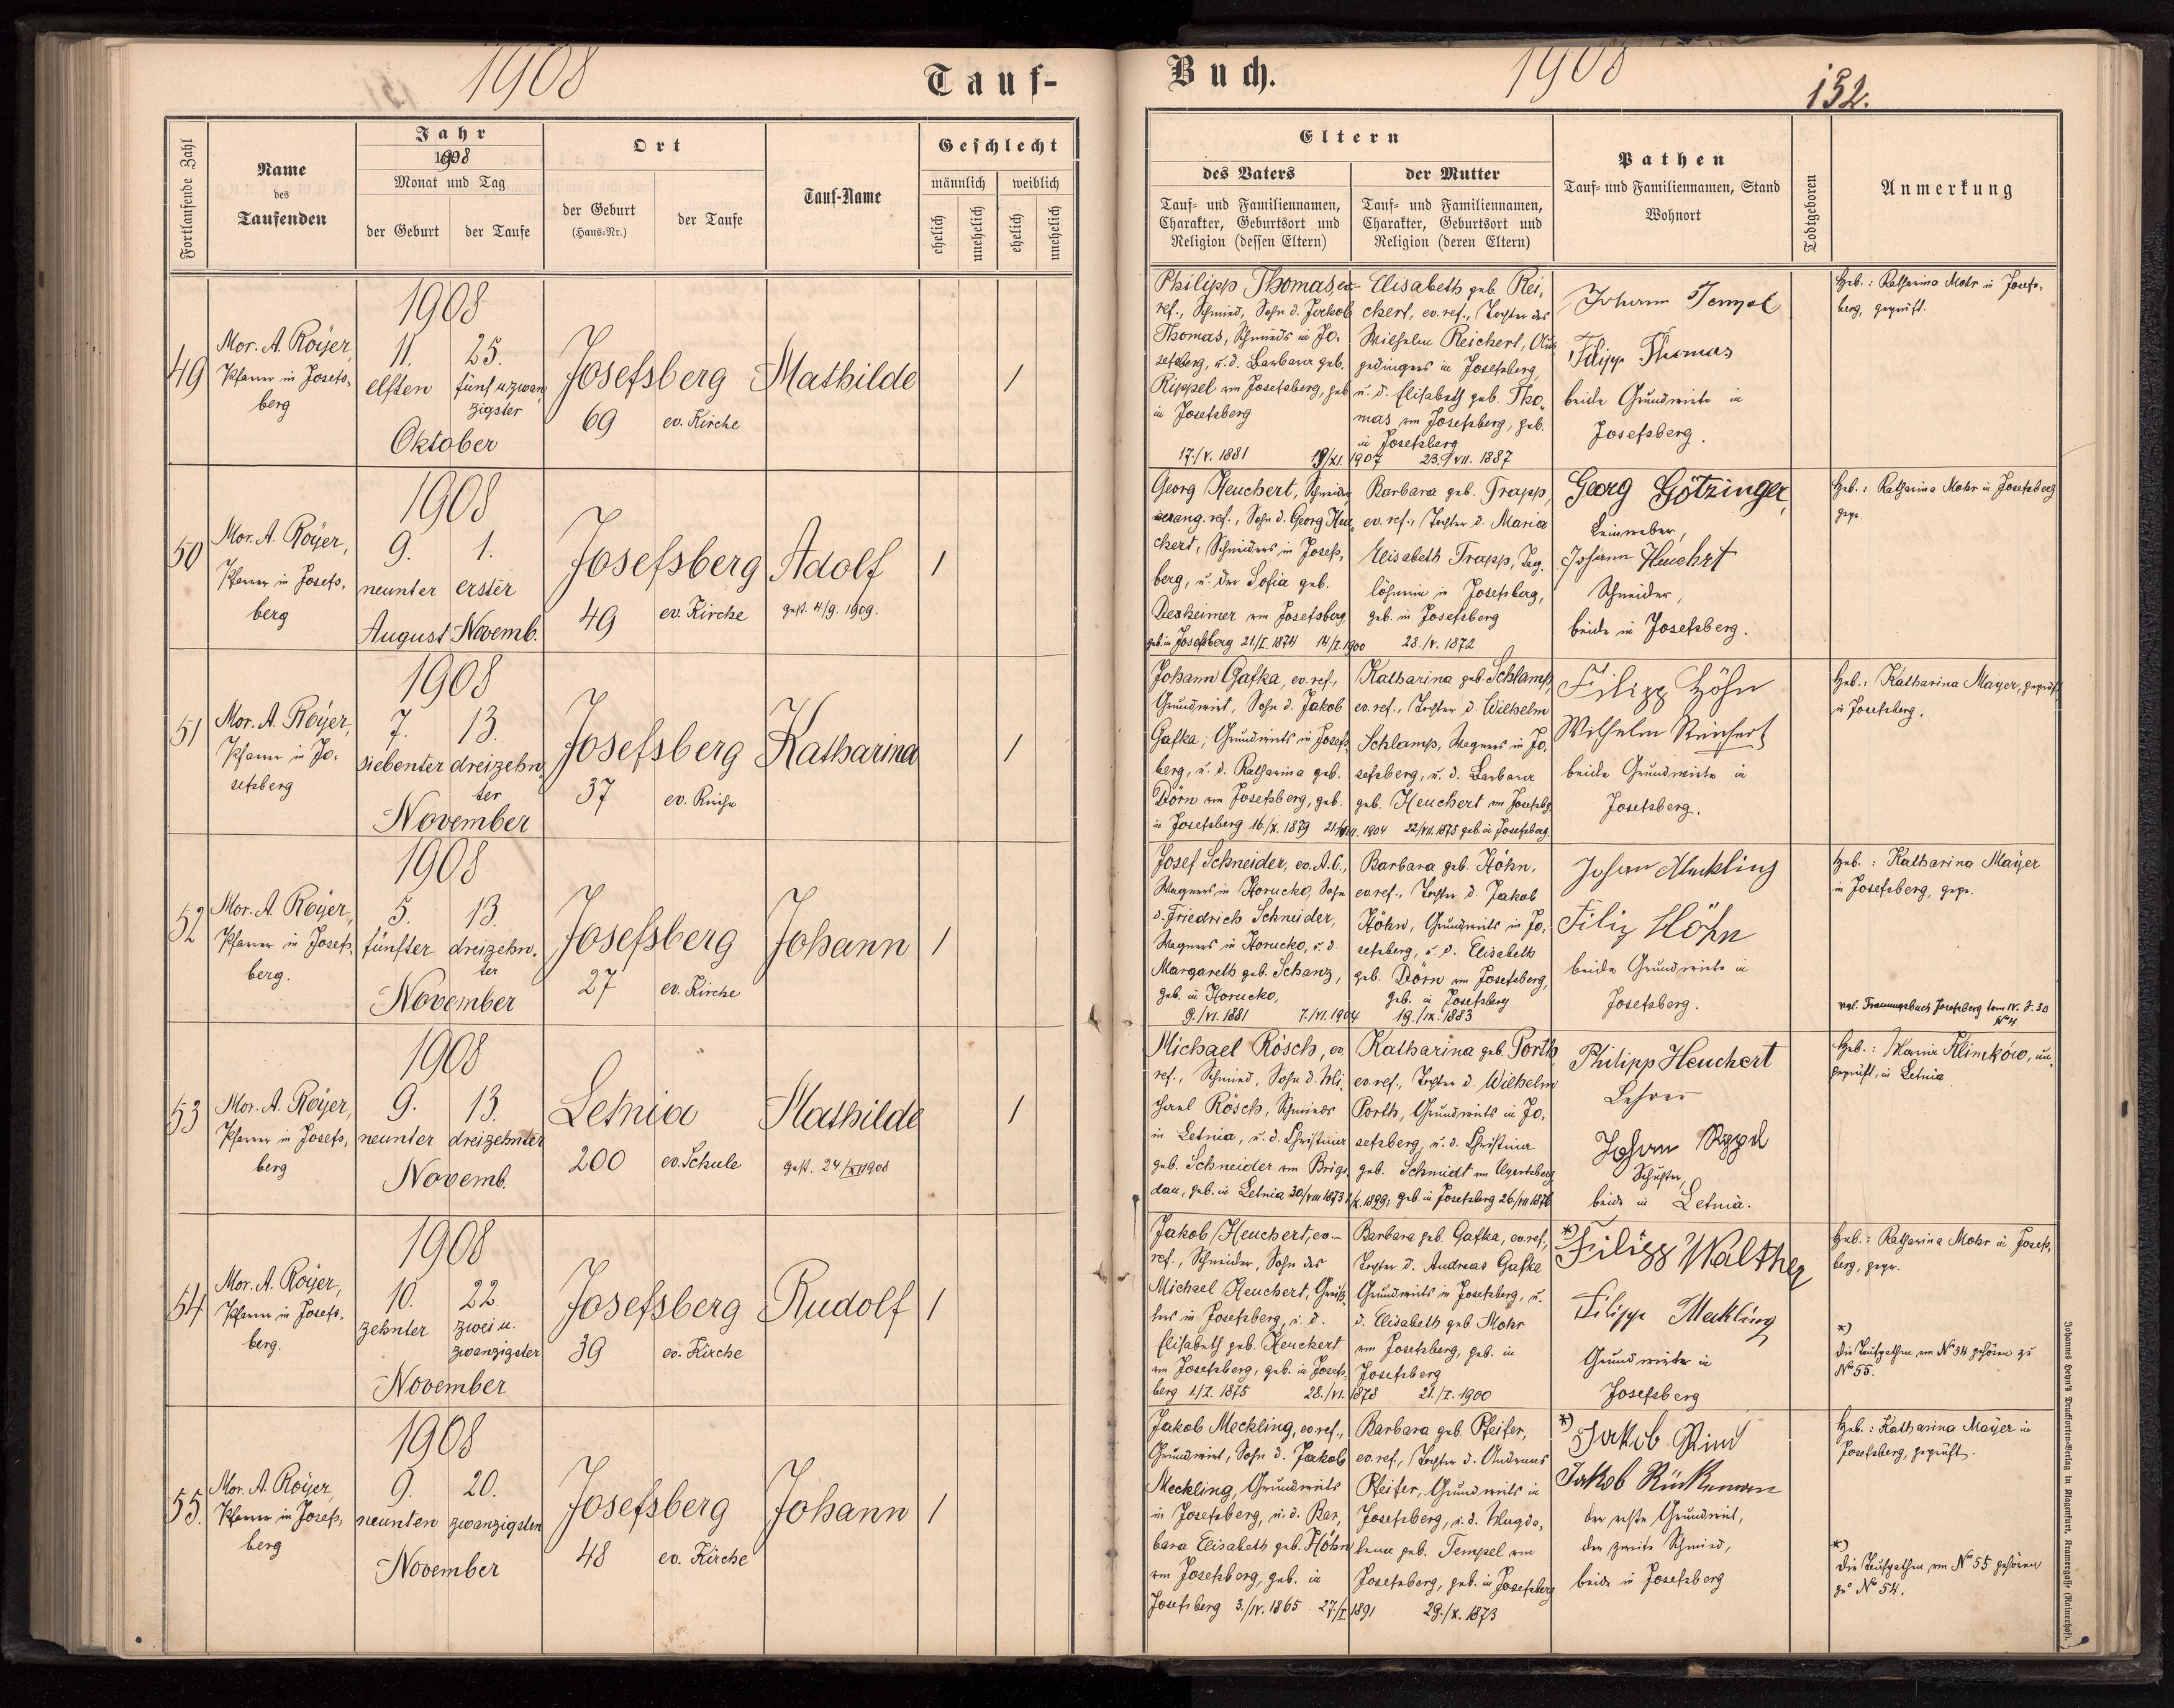 1908
Tauf-
Buch.
1908
152.
Fortlaufende Zahl
Name
des
Taufenden
Jahr
1908
Monat und Tag
der Geburt
der Taufe
Ort
der Geburt
(Haus-Nr.)
der Taufe
Tauf-Name
Geschlecht
männlich
weiblich
ehelich
unehelich
ehelich
unehelich
Eltern
des Vaters
Tauf- und Familiennamen,
Charakter, Geburtsort und
Religion (dessen Eltern)
der Mutter
Tauf- und Familiennamen,
Charakter, Geburtsort und
Religion (deren Eltern)
Pathen
Tauf- und Familiennamen, Stand
Wohnort
Todtgeboren
Anmerkung
49
Mor. A. Royer,
Pfarrer in Josefs-
berg
1908
11. 25.
elften fünf u. zwan
zigster
Oktober
Josefsberg
69 ev. Kirche
Mathilde
1
Philipp Thomas, ev.
ref., Schmied, Sohn d. Jakob
Thomas, Schmieds in Jo-
sefsberg, u. d. Barbara geb.
Rippel von Josefsberg, geb
in Josefsberg
17./V. 1881
19/XI. 1907
Elisabeth geb. Rei-
chert, ev. ref., Tochter des
Wilhelm Reichert, Aus
gedingers in Josefsberg,
u. d. Elisabeth geb. Tho-
mas von Josefsberg, geb.
in Josefsberg
23./VII. 1887
Johann Tempel
Filipp Thomas
beide Grundwirte in
Josefsberg.
Heb.: Katharina Mohr in Josefs-
berg, geprüft.
50
Mor. A. Royer,
Pfarrer in Josefs-
berg
1908
9. 1.
neunter erster
August Novemb.
Josefsberg
49 ev. Kirche
Adolf
gest. 4/9. 1909.
1
Georg Heuchert, Schneider
evang. ref., Sohn d. Georg Heu-
chert, Schneiders in Josefs-
berg, u. der Sofia geb.
Dexheimer von Josefsberg
geb. in Josefsberg 21/I. 1874 14/I. 1900
Barbara geb. Trapp,
ev. ref., Tochter d. Maria
Elisabeth Trapp, Tag-
löhnerin in Josefsberg,
geb. in Josefsberg
28./V. 1872
Georg Götzinger,
Leinweber,
Johann Heuchrt
Schneider,
beide in Josefsberg.
Heb.: Katharina Mohr in Josefsberg
gepr.
51
Mor. A. Royer,
Pfarrer in Jo-
sefsberg
1908
7. 13.
siebenter dreizehn
ter
November
Josefsberg
37 ev. Kirche
Katharina
1
Johann Gafka, ev. ref.,
Grundwirt, Sohn d. Jakob
Gafka, Grundwirts in Josefs-
berg, u. d. Katharina geb.
Dörn von Josefsberg, geb.
in Josefsberg 16/X. 1879
1904
Katharina geb. Schlamp,
ev. ref., Tochter d. Wilhelm
Schlamp, Wagners in Jo-
sefsberg, u. d. Barbara
geb. Heuchert von Josefsbg.
22/VII. 1875 geb. in Josefsberg.
Filipp Höhn
Wilhelm Reichert
beide Grundwirte in
Josefsberg.
Heb.: Katharina Mayer, geprüft
in Josefsberg.
52
Mor. A. Royer,
Pfarrer in Josefs-
berg.
1908
5. 13.
fünfter dreizehn-
ter
November
Josefsberg
27 ev. Kirche
Johann
1
Josef Schneider, ev. A. C.,
Wagners in Horucko, Sohn
d. Friedrich Schneider,
Wagners in Horucko, u. d.
Margareth geb. Schanz,
geb. in Horucko,
9./VI. 1881 7./VI. 1904
Barbara geb. Höhn,
ev. ref., Tochter d. Jakob
Höhn, Grundwirts in Jo-
sefsberg, u. d. Elisabeth
geb. Dörn von Josefsberg,
geb. in Josefsberg
19./IX. 1883
Johan Meckling
Filip Höhn
beide Grundwirte in
Josefsberg.
Heb.: Katharina Mayer
in Josefsberg, gepr.
vgl. Trauungsbuch Josefsberg tom IV. S. 30
N° 4
53
Mor. A. Royer,
Pfarrer in Josefs-
berg
1908
9. 13.
neunter dreizehnter
Novemb.
Letnia
200 ev. Schule
Mathilde
gest. 24/XII 1908
1
Michael Rösch, ev.
ref., Schmied, Sohn d. Mi-
chael Rösch, Schmieds
in Letnia, u. d. Christina
geb. Schneider von Brigi-
dau, geb. in Letnia 30/VIII 1873
Katharina geb. Porth
ev. ref., Tochter d. Wilhelm
Porth, Grundwirts in Jo-
sefsberg, u. d. Christina
geb. Schmidt von Ugartsberg
/X. 1899; geb. in Josefsberg 26/VII 1876
Philipp Heuchert
Lehrer
Johann Rippel
Schuster,
beide in Letnia.
Heb.: Maria Klimków, un-
geprüft, in Letnia
54
Mor. A. Royer,
Pfarrer in Josefs-
berg.
1908
10. 22.
zehnter zwei u.
zwanzigster
November
Josefsberg
39 ev. Kirche
Rudolf
1
Jakob Heuchert, ev-
ref., Schneider, Sohn des
Michael Heuchert,
in Josefsberg, u. d.
Elisabeth geb. Heuchert
von Josefsberg, geb. in Josefs-
berg 1/I. 1875 28./VI. 1878
Barbara geb. Gafka, ev. ref.,
Tochter d. Andreas Gafka
Grundwirts in Josefsberg, u.
d. Elisabeth geb. Mohr
von Josefsberg, geb. in
Josefsberg
21./I. 1900
*) Filipp Walther
Filipp Meckling
Grundwirte in
Josefsberg
Heb.: Katharina Mohr in Josefs-
berg, gepr.
*)
Die Taufpathen von N° 54 gehören zu
N° 55.
55.
Mor. A. Royer,
Pfarrer in Josefs-
berg
1908
9. 20.
neunten zwanzigsten
November
Josefsberg
48 ev. Kirche
Johann
1
Jakob Meckling, ev. ref.,
Grundwirt, Sohn d. Jakob
Meckling, Grundwirts
in Josefsberg, u. d. Bar-
bara Elisabeth geb. Höhn
von Josefsberg, geb. in
Josefsberg 3./IV. 1865 27/I 1891
Barbara geb. Pfeifer,
ev. ref., Tochter d. Andreas
Pfeifer, Grundwirts in
Josefsberg, u. d. Magda-
lena geb. Tempel von
Josefsberg, geb. in Josefsberg
29./X. 1873
*) Jakob Rind
Jakob
der erste Grundwirt,
der zweite Schmied,
beide in Josefsberg
Heb.: Katharina Mayer in
Josefsberg, geprüft.
*)
Die Taufpathen von N° 55 gehören
zu N° 54.
Johannes Heyn's Drucksorten-Verlag in Klagenfurt, Kramergasse (Rainerhof).